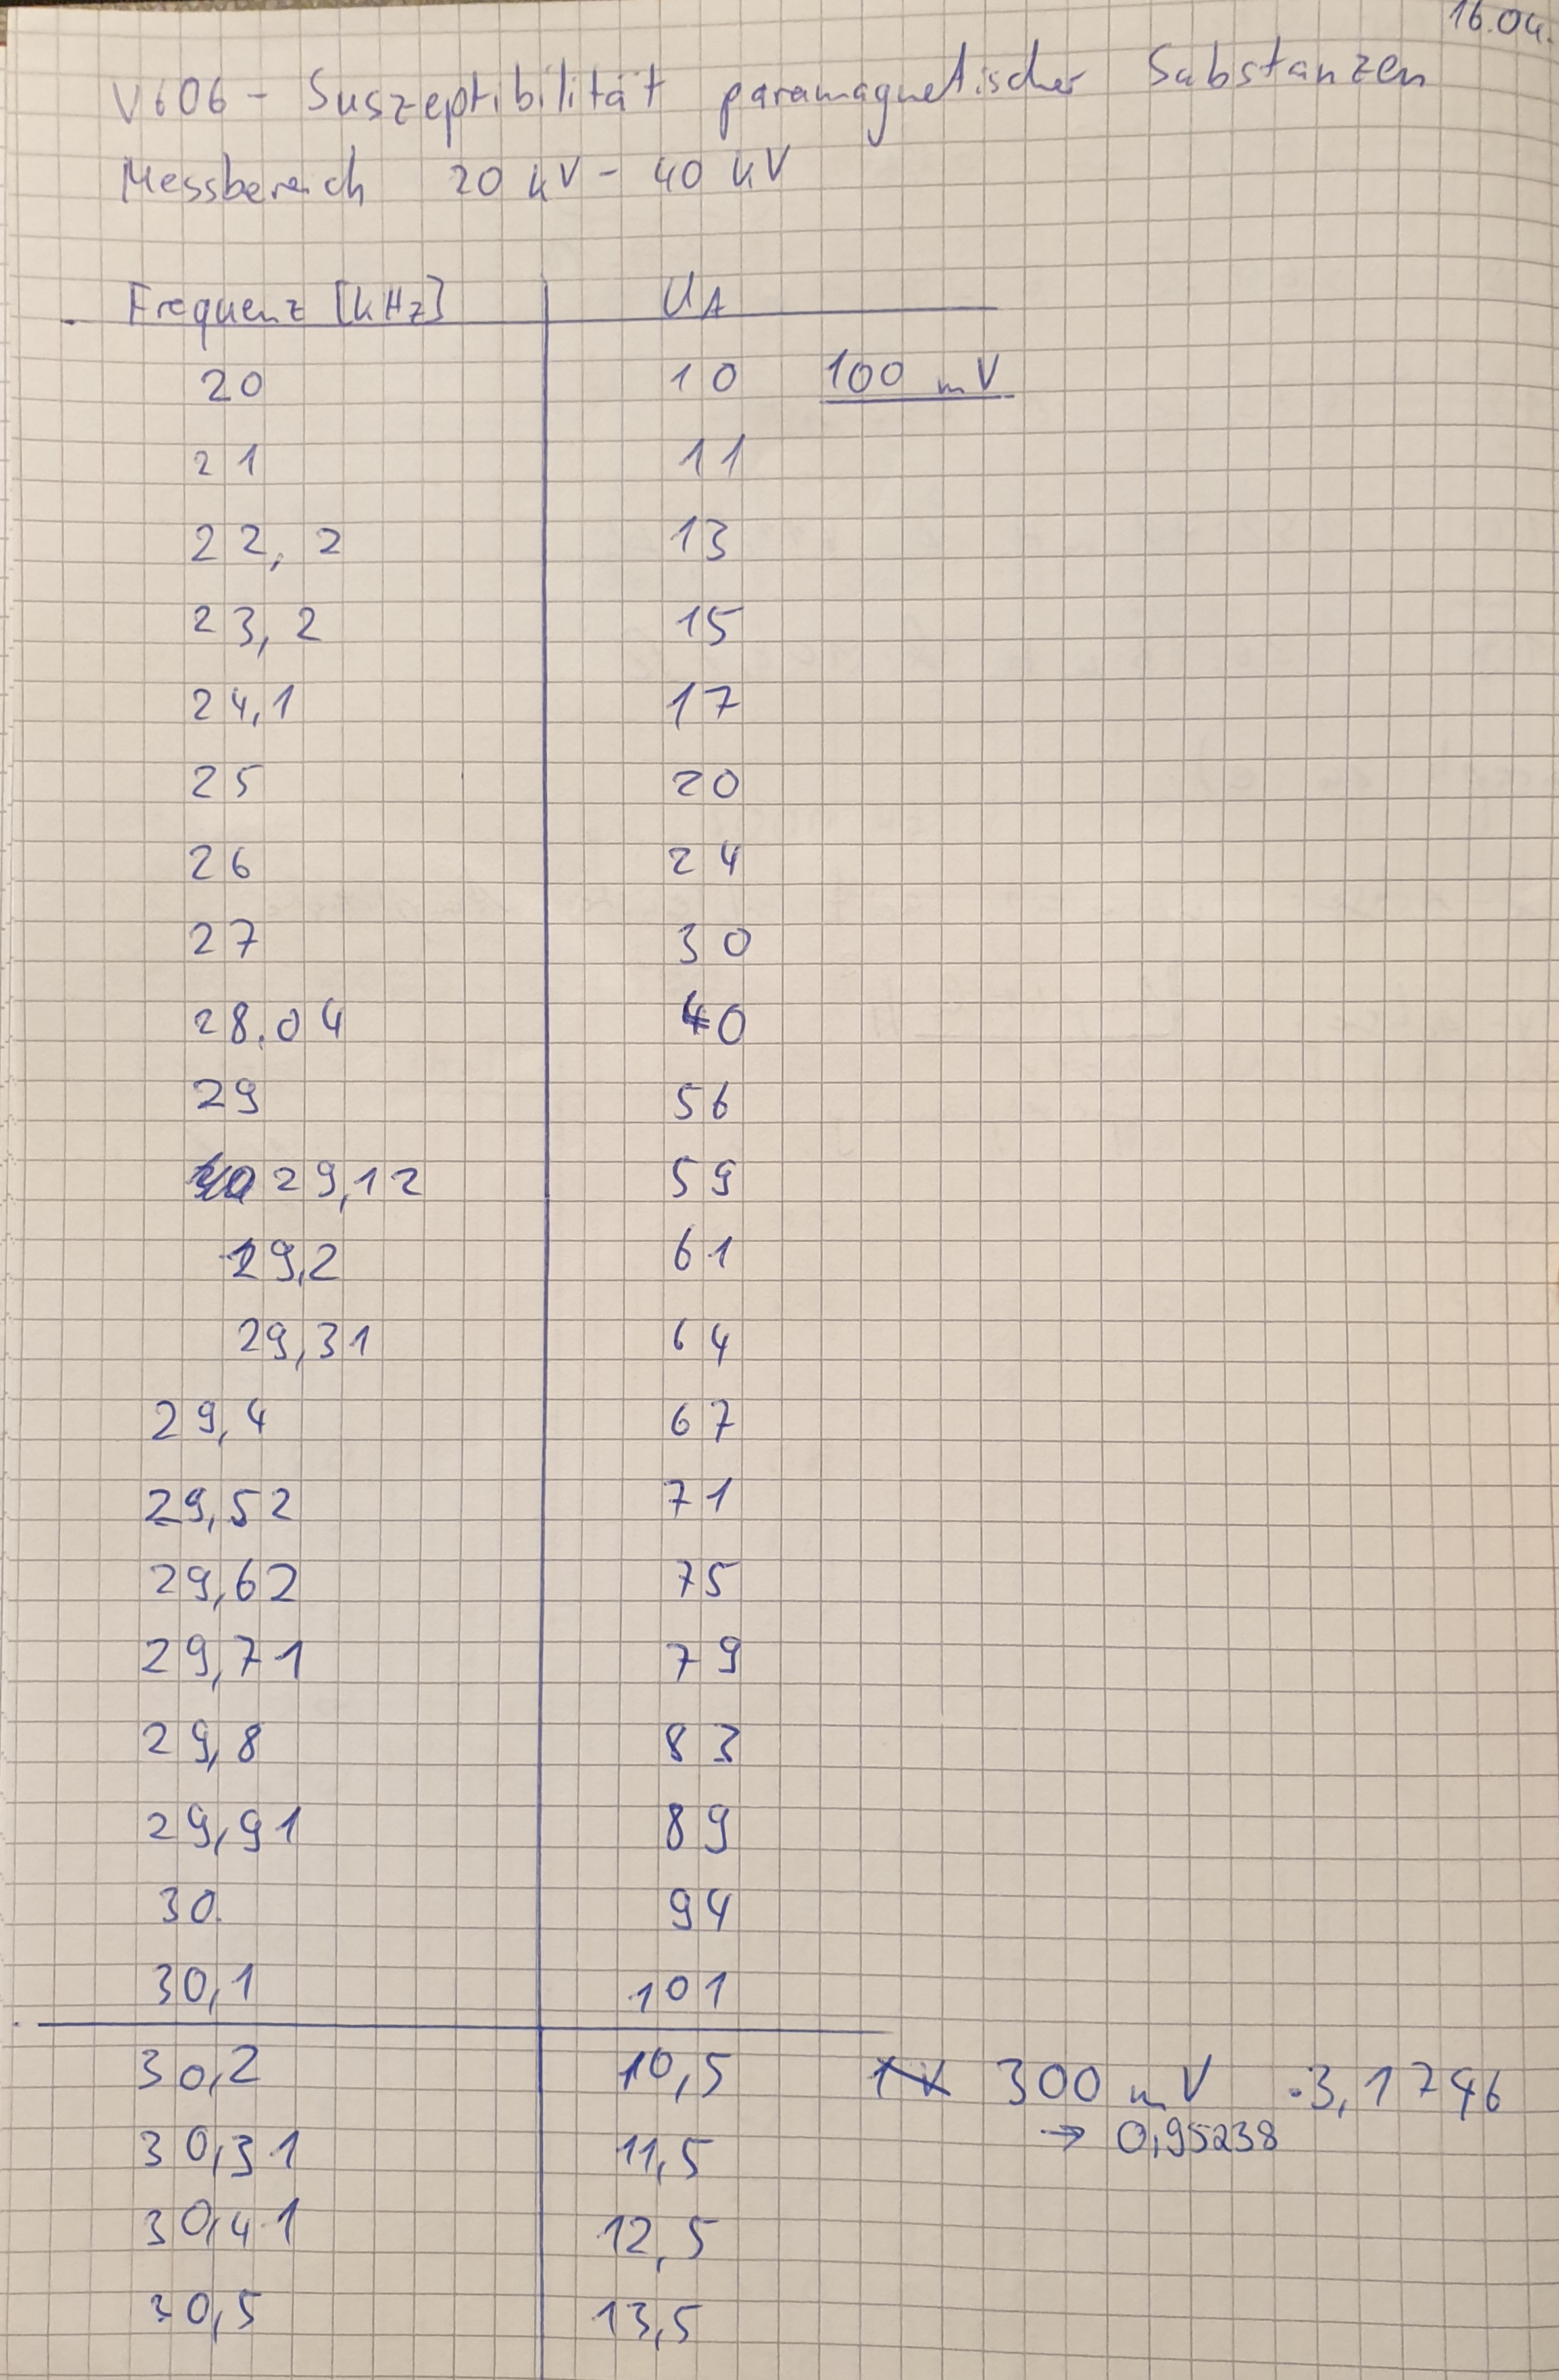 16.04.
V606 - Suszeptibilität paramagnetischer Substanzen
Messbereich 20 kV - 40 kV
Frequenz [kHz] UA
20 10 100 mV
21 11
22,2 13
23,2 15
24,1 17
25 20
26 24
27 30
28.04 40
29 56
29,12 59
29,2 61
29,31 64
29,4 67
29,52 71
29,62 75
29,71 79
29,8 83
29,91 89
30. 94
30,1 101
30,2 10,5 1V 300 mV ·3,1746
→ 0,95238
30,31 11,5
30,41 12,5
30,5 13,5